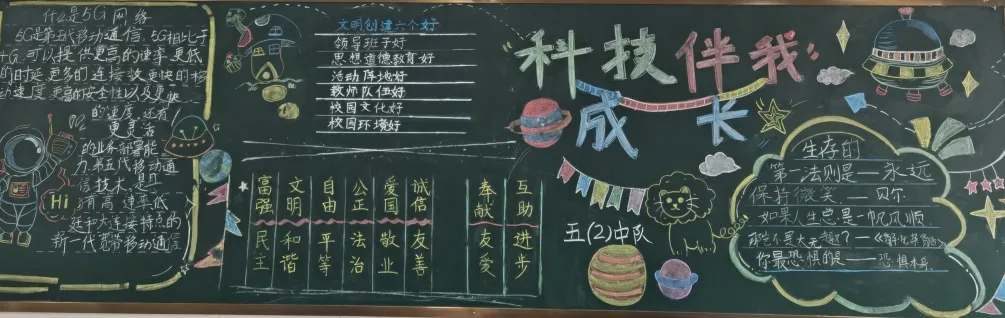 什么是5G网络
5G是第五代移动通信,5G相比于
4G,可以提供更高的速率、更低
的时延、更多的连接数、更快的移
动速度、更高的安全性以及更
的速度,还有
更灵活
的业务部署能
力,第五代移动通
信技术,是具
有高速率、低
延和大连接特点的
新一代宽带移动通信
Hi
文明创建六个好
领导班子好
思想道德教育好
活动阵地好
教师队伍好
校园文化好
校园环境好
富强 文明 自由 公正 爱国 诚信 奉献 互助
民主 和谐 平等 法治 敬业 友善 友爱 进步
科技伴我
成长
五(2)中队
生存的
第一法则是——永远
保持微笑——贝尔
如果人生总是一帆风顺
那岂不是太无趣了?——
你最恐惧的是——恐惧本身